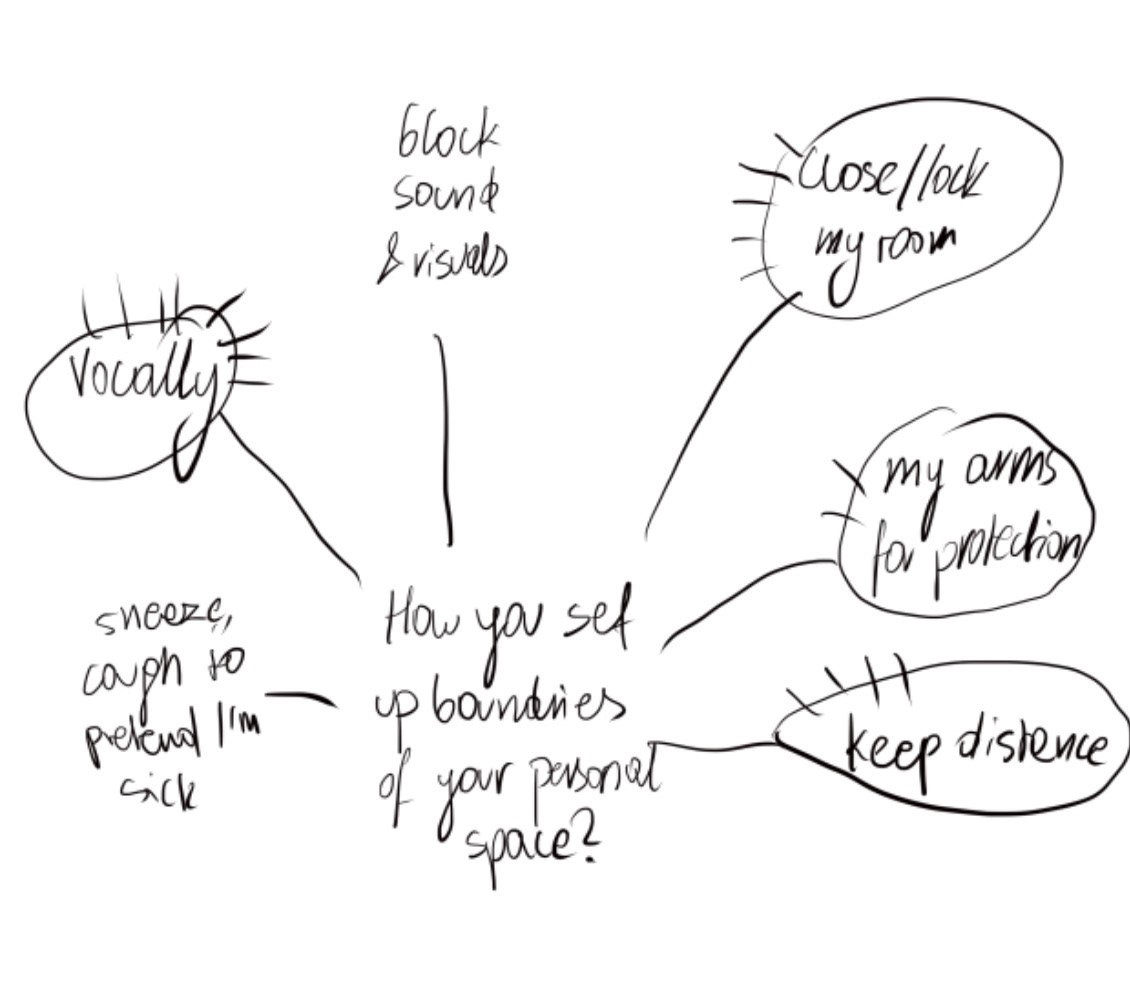 block
sound
& visuals
Close/lock
my room
Vocally
my arms
for protection
sneeze,
cough to
pretend I'm
sick
How you set
up boundries
of your personal
space?
keep distance